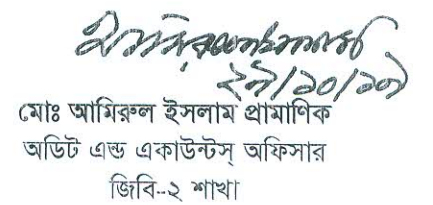 মোঃ আমিরুল ইসলাম প্রামাণিক
অডিট এন্ড একাউন্টস্ অফিসার
জিবি-২ শাখা